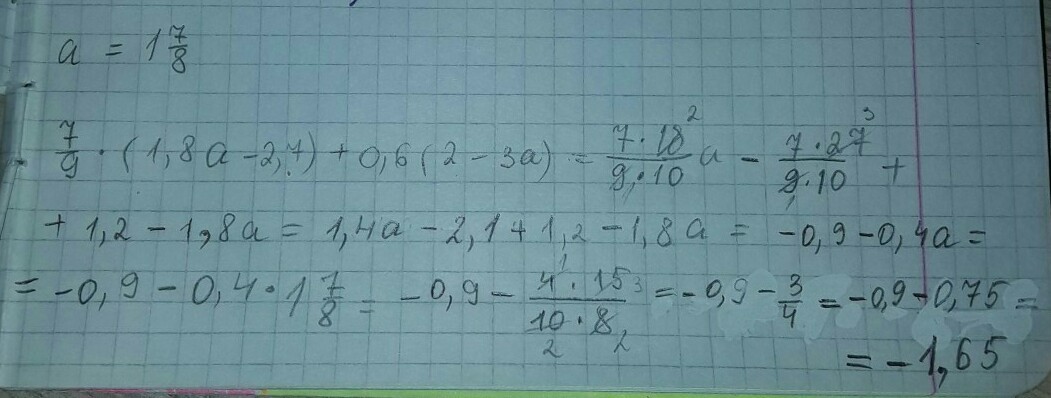 a = 1 7/8
7/9 · (1,8a - 2,7) + 0,6 (2 - 3a) = 7·18²/9₁·10 a - 7·27³/9₁·10 +
+ 1,2 - 1,8a = 1,4a - 2,1 + 1,2 - 1,8a = -0,9 - 0,4a =
= -0,9 - 0,4 · 1 7/8 = -0,9 - 4¹·15³/10₂·8₂ = -0,9 - 3/4 = -0,9 - 0,75 =
= -1,65